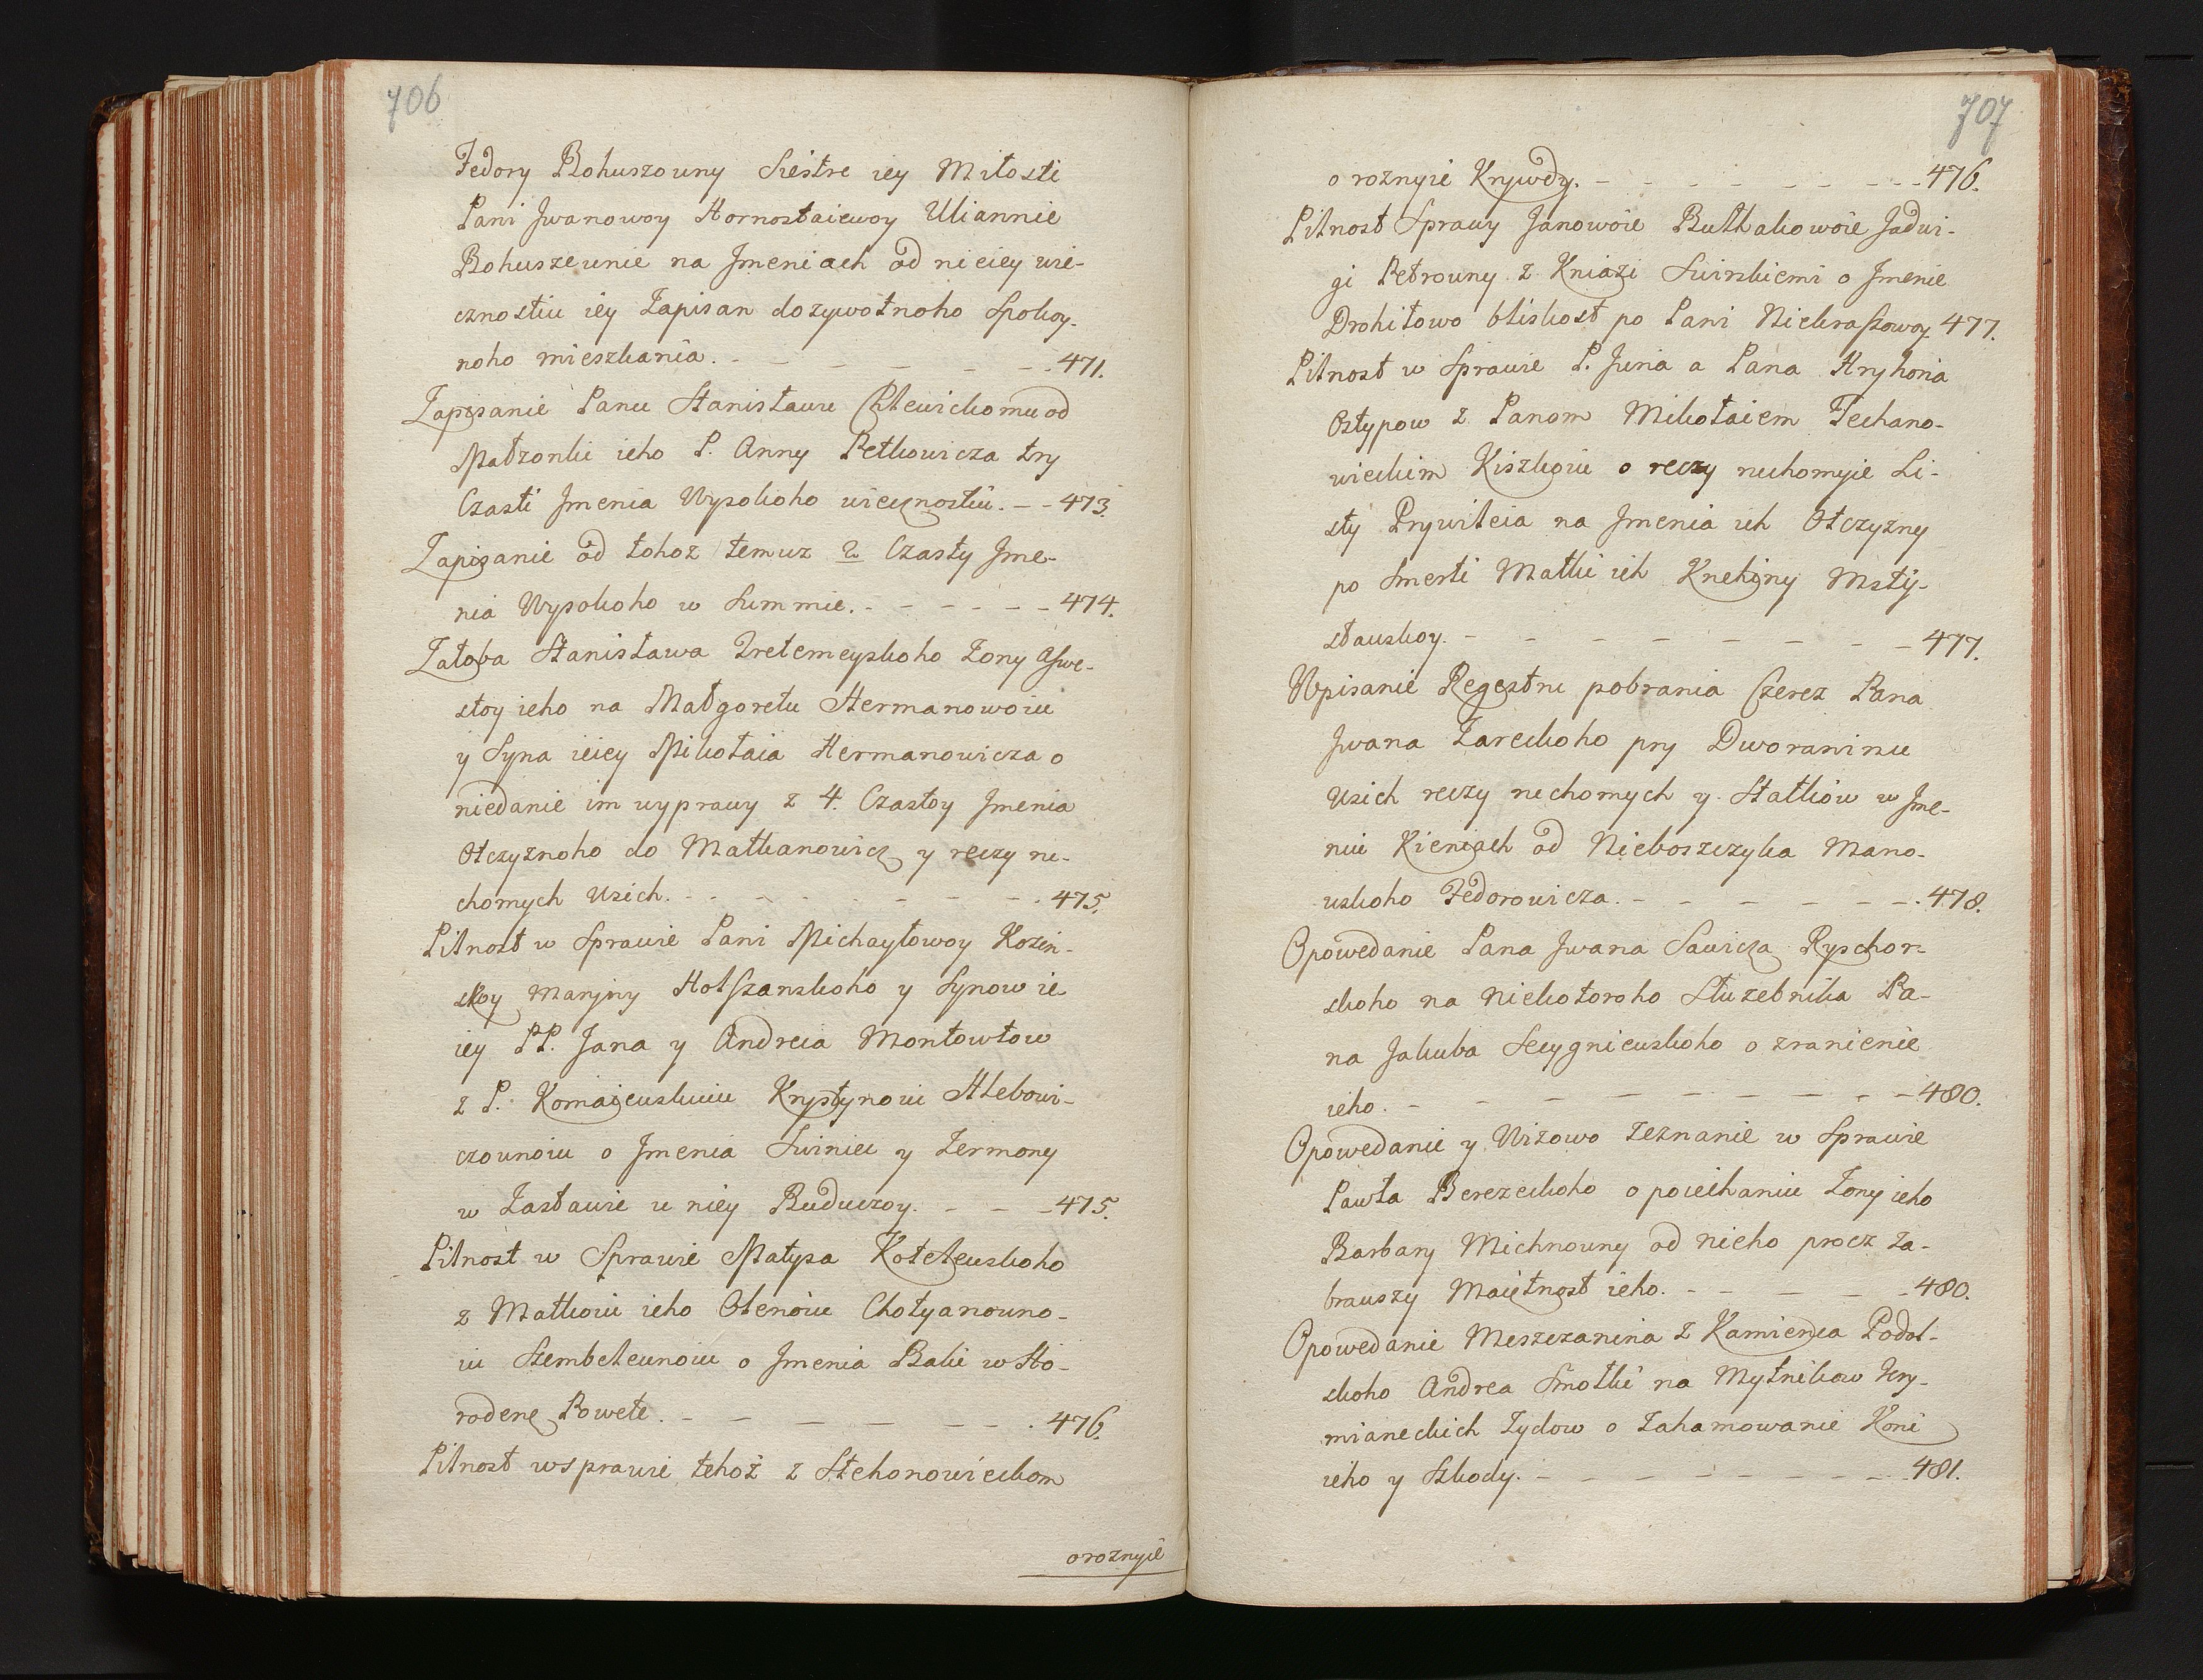 706
Fedory Bohuszouny Siestre iey Miłosti
Pani Jwanowoy Hornostaiewoy Uliannie
Bohuszeunie na Jmeniach od nieiey wie-
cznostiu iey Zapisan dozywotnoho Spokoy-
noho mieszkania. - - - - - - 471.
Zapisanie Panu Stanisławu Chlewickomu od
Małzonki ieho P. Anny Petkowicza try
Czasti Jmenia Wysokoho wiecznostiu. - - 473.
Zapisanie od tohoz temuz 2 Czasty Jme-
nia Wysokoho w Summie. - - - - - - 474.
Załoba Stanisława Dretemeyskoho Zony
stoy ieho na Małgoretu Hermanowoiu
y Syna ieiey Mikołaia Hermanowicza o
niedanie im wyprawy z 4. Czastoy Jmenia
Otczyznoho do Matkanowicz y reczy ru-
chomych usich. - - - - - - - - 475.
Pilnost w Sprawie Pani Michayłowoy Kozin-
skoy Maryny Holszanskoho y Synow ie
iey PP. Jana y Andreia Montowtow
z P. Komaiewskuiu Krystynoiu Hlebowi-
czounoiu o Jmenia Swiniec y Zermony
w Zastawie u niey Buduczoy. - - - 475.
Pilnost w Sprawie Matysa Kotelewskoho
z Matkoiu ieho Olenoiu Chotyanouno-
iu Szembelewnoiu o Jmenia Balu w Ho-
rodene Powete. - - - - - - - 476.
Pilnost wsprawie tehoż z Stehonowieckom
oroznyie
707
o roznyie Krywdy. - - - - - - - - - 476.
Pilnost Sprawy Janowoie Butkakowoie Jadwi-
gi Petrouny z Kniazi Swirskiemi o Jmenie
Drohiłowo bliskost po Pani Niekraszowoy 477.
Pilnost w Sprawie P. Juria a Pana Hryhoria
Ostypow z Panom Mikołaiem Techano-
wieckim Kiszkoiu o reczy ruchomyie Li-
sty Prywileia na Jmenia ich Otczyzny
po Smerti Matki ich Knehiny Msti-
sławskoy. - - - - - - - - 477.
Wpisanie Regestru pobrania Czerez Pana
Jwana Zareckoho pry Dworaninu
Usich reczy ruchomych y Statkow w Jme-
niu Kieniach od Nieboszczyka Mano-
uskoho Fedorowicza. - - - - - - - 478.
Opowedanie Pana Jwana Sawicza Ryschor-
skoho na niekotoroho Sluzebnika Pa-
na Jakuba Secygniewskoho o zranienie
ieho. - - - - - - - - - 480.
Opowedanie y Wizowo Zeznanie w Sprawie
Pawła Berezeckoho o poiechaniu Zony ieho
Barbary Michnouny od nieho procz Za-
brauszy Maiętnost ieho. - - - - - - 480.
Opowedanie Meszczanina z Kamienca Podol-
skoho Andrea Smotki na Mytnikow Kry-
mianeckich Zydow o Zahamowanie Koni
ieho y Szkody. - - - - - - - - - 481.